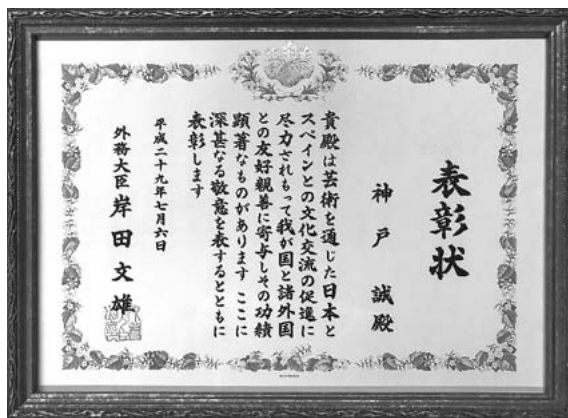 表彰状
神戸 誠殿
貴殿は芸術を通じた日本と
スペインとの文化交流の促進に
尽力されもって我が国と諸外国
との友好親善に寄与しその功績
顕著なものがあります ここに
深甚なる敬意を表するとともに
表彰します
平成二十九年七月六日
外務大臣 岸田文雄